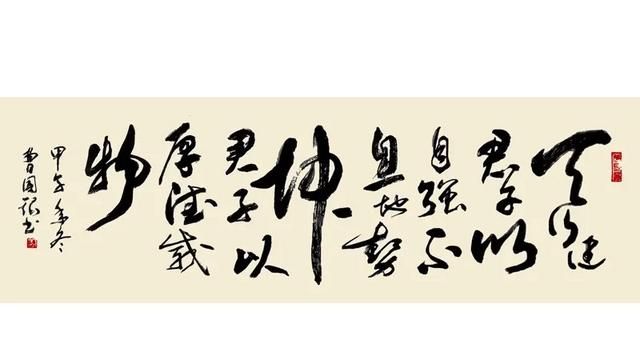 天行健
君子以
自强不
息地势
坤
君子以
厚德载
物
甲午年冬
曹国书